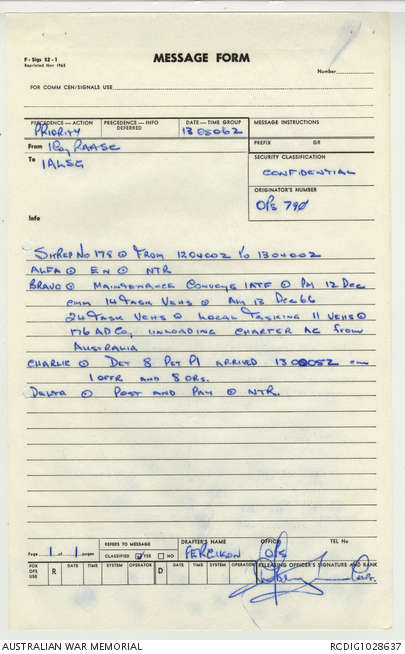 F - Sigs 52 - 1
Reprinted Nov 1965
MESSAGE FORM
Number
FOR COMM CEN/SIGNALS USE
PRECEDENCE — ACTION
PRIORITY
PRECEDENCE — INFO
DEFERRED
DATE — TIME GROUP
130506Z
MESSAGE INSTRUCTIONS
From 1 Coy RAASC
PREFIX GR
To 1ALSG
SECURITY CLASSIFICATION
CONFIDENTIAL
ORIGINATOR'S NUMBER
OPS 790
Info
SITREP No 178 @ FROM 120400Z TO 130400Z
ALFA @ EN @ NTR
BRAVO @ MAINTENANCE CONVOYS 1ATF @ PM 12 DEC
CMM 14 TASK VEHS @ AM 13 DEC 66
24 TASK VEHS @ LOCAL TASKING 11 VEHS @
176 AD CO, UNLOADING CHARTER AC FROM
AUSTRALIA
CHARLIE @ DET 8 PET PL ARRIVED 130005Z CMM
1 OFFR AND 8 ORS.
DELTA @ POST AND PAY @ NTR.
Page 1 of 1 pages
REFERS TO MESSAGE
CLASSIFIED YES NO
DRAFTER'S NAME
FERGUSON
OFFICE
OPS
TEL No
FOR OPS USE
R DATE TIME SYSTEM OPERATOR D DATE TIME SYSTEM OPERATOR
RELEASING OFFICER'S SIGNATURE AND RANK
Capt.
AUSTRALIAN WAR MEMORIAL
RCDIG1028637